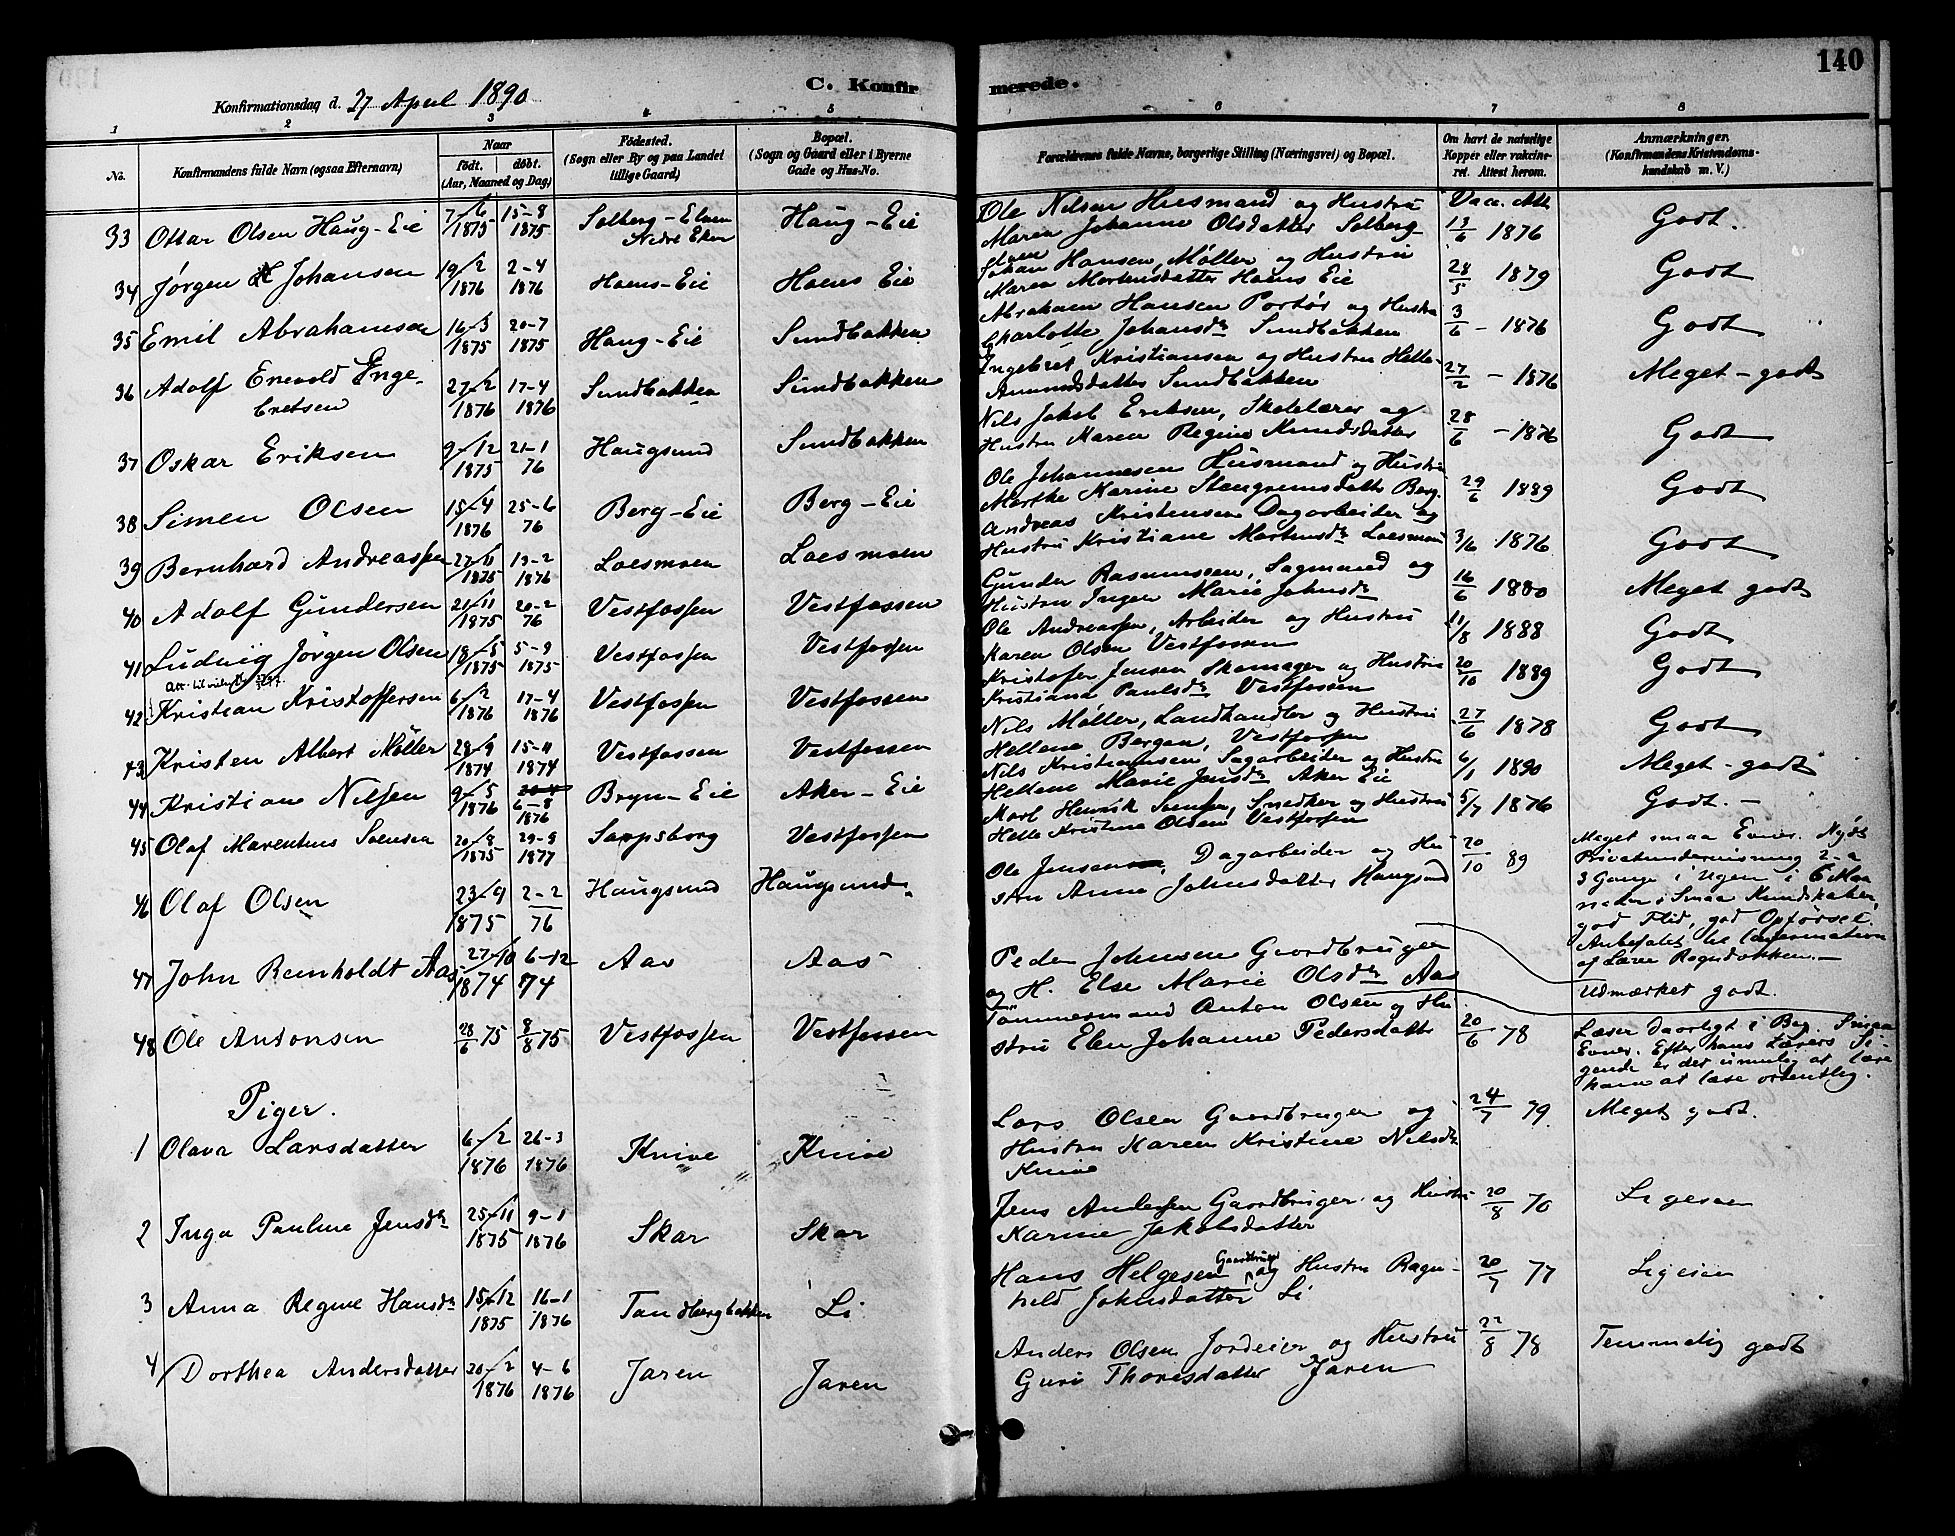 140
C. Konfirmerede.
Konfirmationsdag d. 27 April 1890
1 2 3 4 5 6 7 8
No. Konfirmandens fulde Navn (ogsaa Efternavn) Naar født. døbt. (Aar, Maaned og Dag) Födested. (Sogn eller By og paa Landet tillige Gaard) Bopæl. (Sogn og Gaard eller i Byerne Gade og Hus-No. Forældrenes fulde Navne, borgerlige Stilling (Næringsvei) og Bopæl. Om havt de naturlige Kopper eller vakcineret. Attest herom. Anmærkninger. (Konfirmandens Kristendomskundskab m. V.)
33 Ottar Olsen Haug-Eie 7/6 1875 15-8 1875 Solberg-Elven Nedre Eker Haug-Eie Ole Nilsen Husmand og Hustru Vacc. Att.
Maren Johanne Olsdatter Solberg-elven 13/6 1876 Godt.
34 Jørgen H Johansen 19/2 1876 2-4 1876 Hoens-Eie Hoens Eie Johan Hansen, Møller og Hustru
Maren Mortensdatter Hoens Eie 28/5 1879 Godt
35 Emil Abrahamsen 16/3 1875 20-7 1875 Haug-Eie Sundbakken Abraham Hansen Portør og Hustru
Charlotte Johansdr Sundbakken 3/6 - 1876 Godt
36 Adolf Enevold Engebretsen 27/2 1876 17-4 1876 Sundbakken Sundbakken Ingebret Kristiansen og Hustru Helle
Amundsdatter Sundbakken 27/2 - 1876 Meget-godt
37 Oskar Eriksen 9/12 1875 21-1 76 Haugsund Sundbakken Nils Jakob Eriksen, Skolelærer og
Hustru Maren Regine Knudsdatter 28/6 - 1876 Godt
38 Simen Olsen 15/4 1876 25-6 76 Berg-Eie Berg-Eie Ole Johannesen Husmand og Hustru
Marthe Karine Berg. 29/6 1889 Godt
39 Bernhard Andreassen 27/11 1875 13-2 1876 Loesmoen Loesmoen Andreas Kristensen Dagarbeider og
Hustru Kristiane Martensdr Loesmoen 3/6 1876 Godt
40 Adolf Gundersen 21/11 1875 20-2 76 Vestfossen Vestfossen Gunder Rasmussen, Sagmand og
Hustru Inger Marie Johnsdr 16/6 1880 Meget godt
41 Ludvig Jörgen Olsen 18/5 1875 5-9 1875 Vestfossen Vestfossen Ole Andreassen, Arbeider og Hustru
Karen Olsen Vestfossen 11/8 1888 Godt
42 Kristian Kristoffersen 6/2 1876 17-4 1876 Vestfossen Vestfossen Kristofer Jensen Skomager og Hustru
Kristiana Paulsdr Vestfossen 20/10 1889 Godt
43 Kristen Albert Møller 28/9 1874 15-11 1874 Vestfossen Vestfossen Nils Møller, Landhandler og Hustru
Hellene Bergen, Vestfossen 27/6 1878 Godt
44 Kristian Nilsen 9/5 1876 6-8 1876 Bryn-Eie Aker-Eie Nils Kristiansen Sagarbeider og Hustru
Hellene Marie Jensdr Aker Eie 6/1 1890 Meget-godt
45 Olaf Marentius Svensen 20/8 1875 29-9 1877 Sarpsborg Vestfossen Karl Henrik Svensen, Snedker og Hustru
Helle Kristine Olsen Vestfossen 5/7 1876 Godt.-
46 Olaf Olsen 23/9 1875 2-2 76 Haugsund Haugsund Ole Jensen, Dagarbeider og Hu
stru Anne Johnsdatter Haugsund 20/10 89 Meget smaa Evner. Nydt
Privatundervisning 2 a
3 Gange i Ugen i 6 Maa
neder. Smaa Kundskaber,
god Flid, god Opförsel.
Anbefalet til Confirmation
af Lærer Rognbakken.-
47 John Reinholdt Aas 27/10 1874 6-12 74 Aas Aas Peder Johnsen Gaardbruger
og H. Else Marie Olsdr Aas Udmærket godt.
48 Ole Antonsen 28/6 75 8/8 75 Vestfossen Vestfossen Tömmermand Anton Olsen og Hu
stru Elen Johanne Pedersdatter 20/6 78 Læser daarligt i Bog. Smaa
Evner. Efter hans Lærers Si-
gende er det umulig at lære
ham at læse ordentlig.
Piger.
1 Olava Larsdatter 6/2 1876 26-3 1876 Knive Knive Lars Olsen Gaardbruger og
Hustru Karen Kristine Nilsdr
Knive 24/7 79. Meget godt.
2 Inga Pauline Jensdr 25/11 1875 9-1 1876 Skar Skar Jens Andersen Gaardbruger og Hustru
Karine Jakobsdatter 20/8 70 Ligesaa
3 Anna Regine Hansdr 15/12 1875 16-1 1876 Tandbergbakken Li Hans Helgesen Gaardbruger og Hustru Ragn-
hild Johnsdatter Li 20/7 77 Ligesaa
4 Dorthea Andersdatter 20/2 1876 4-6 1876 Jaren Jaren Anders Olsen Jordeier og Hustru
Guri Thoresdatter Jaren 22/8 78 Temmelig godt